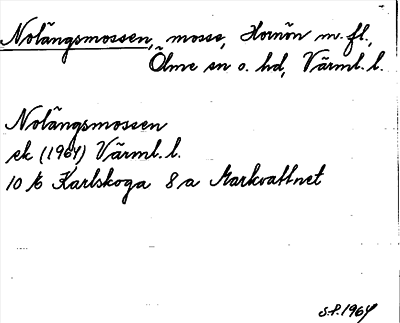 Nolängsmossen, mosse, Hornön m. fl.,
Ölme sn o. hd, Värml. l.
Nolängsmossen
ek (1964) Värml. l.
10 b Karlskoga 8 a Markvattnet
S.P. 1964